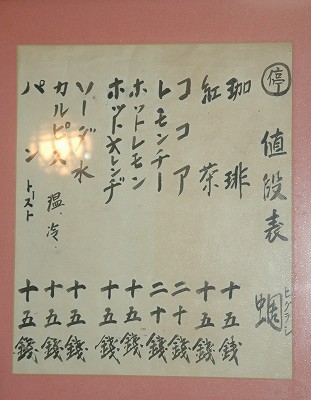 停 値段表 蜩 ヒグラシ
珈琲 十五銭
紅茶 十五銭
ココア 二十銭
レモンチー 二十銭
ホットレモン 十五銭
ホットオレンヂ 十五銭
ソーダ水 十五銭
カルピス 温、冷 十五銭
パン トースト 十五銭